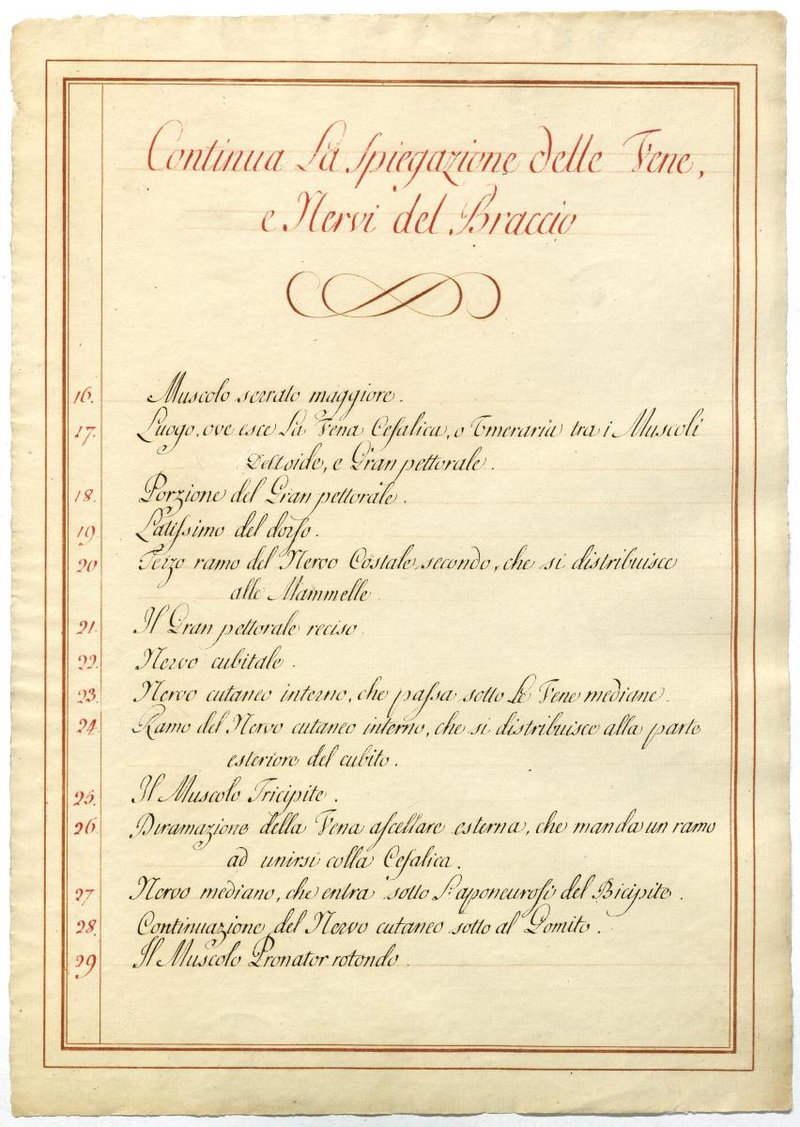 Continua La Spiegazione delle Vene,
e Nervi del Braccio
16. Muscolo serrato maggiore.
17. Luogo, ove esce La Vena Cefalica, o Umeraria tra i Muscoli
Deltoide, e Gran pettorale.
18. Porzione del Gran pettorale.
19 Latissimo del dorso.
20 Terzo ramo del Nervo Costale secondo, che si distribuisce
alle Mammelle
21. Il Gran pettorale reciso.
22. Nervo cubitale.
23. Nervo cutaneo interno, che passa sotto Le Vene mediane.
24. Ramo del Nervo cutaneo interno, che si distribuisce alla parte
esteriore del cubito.
25. Il Muscolo Tricipite.
26. Diramazione della Vena ascellare esterna, che manda un ramo
ad unirsi colla Cefalica.
27 Nervo mediano, che entra sotto L'aponeurosi del Bicipite.
28. Continuazione del Nervo cutaneo sotto al Gomito.
29 Il Muscolo Pronator rotondo.